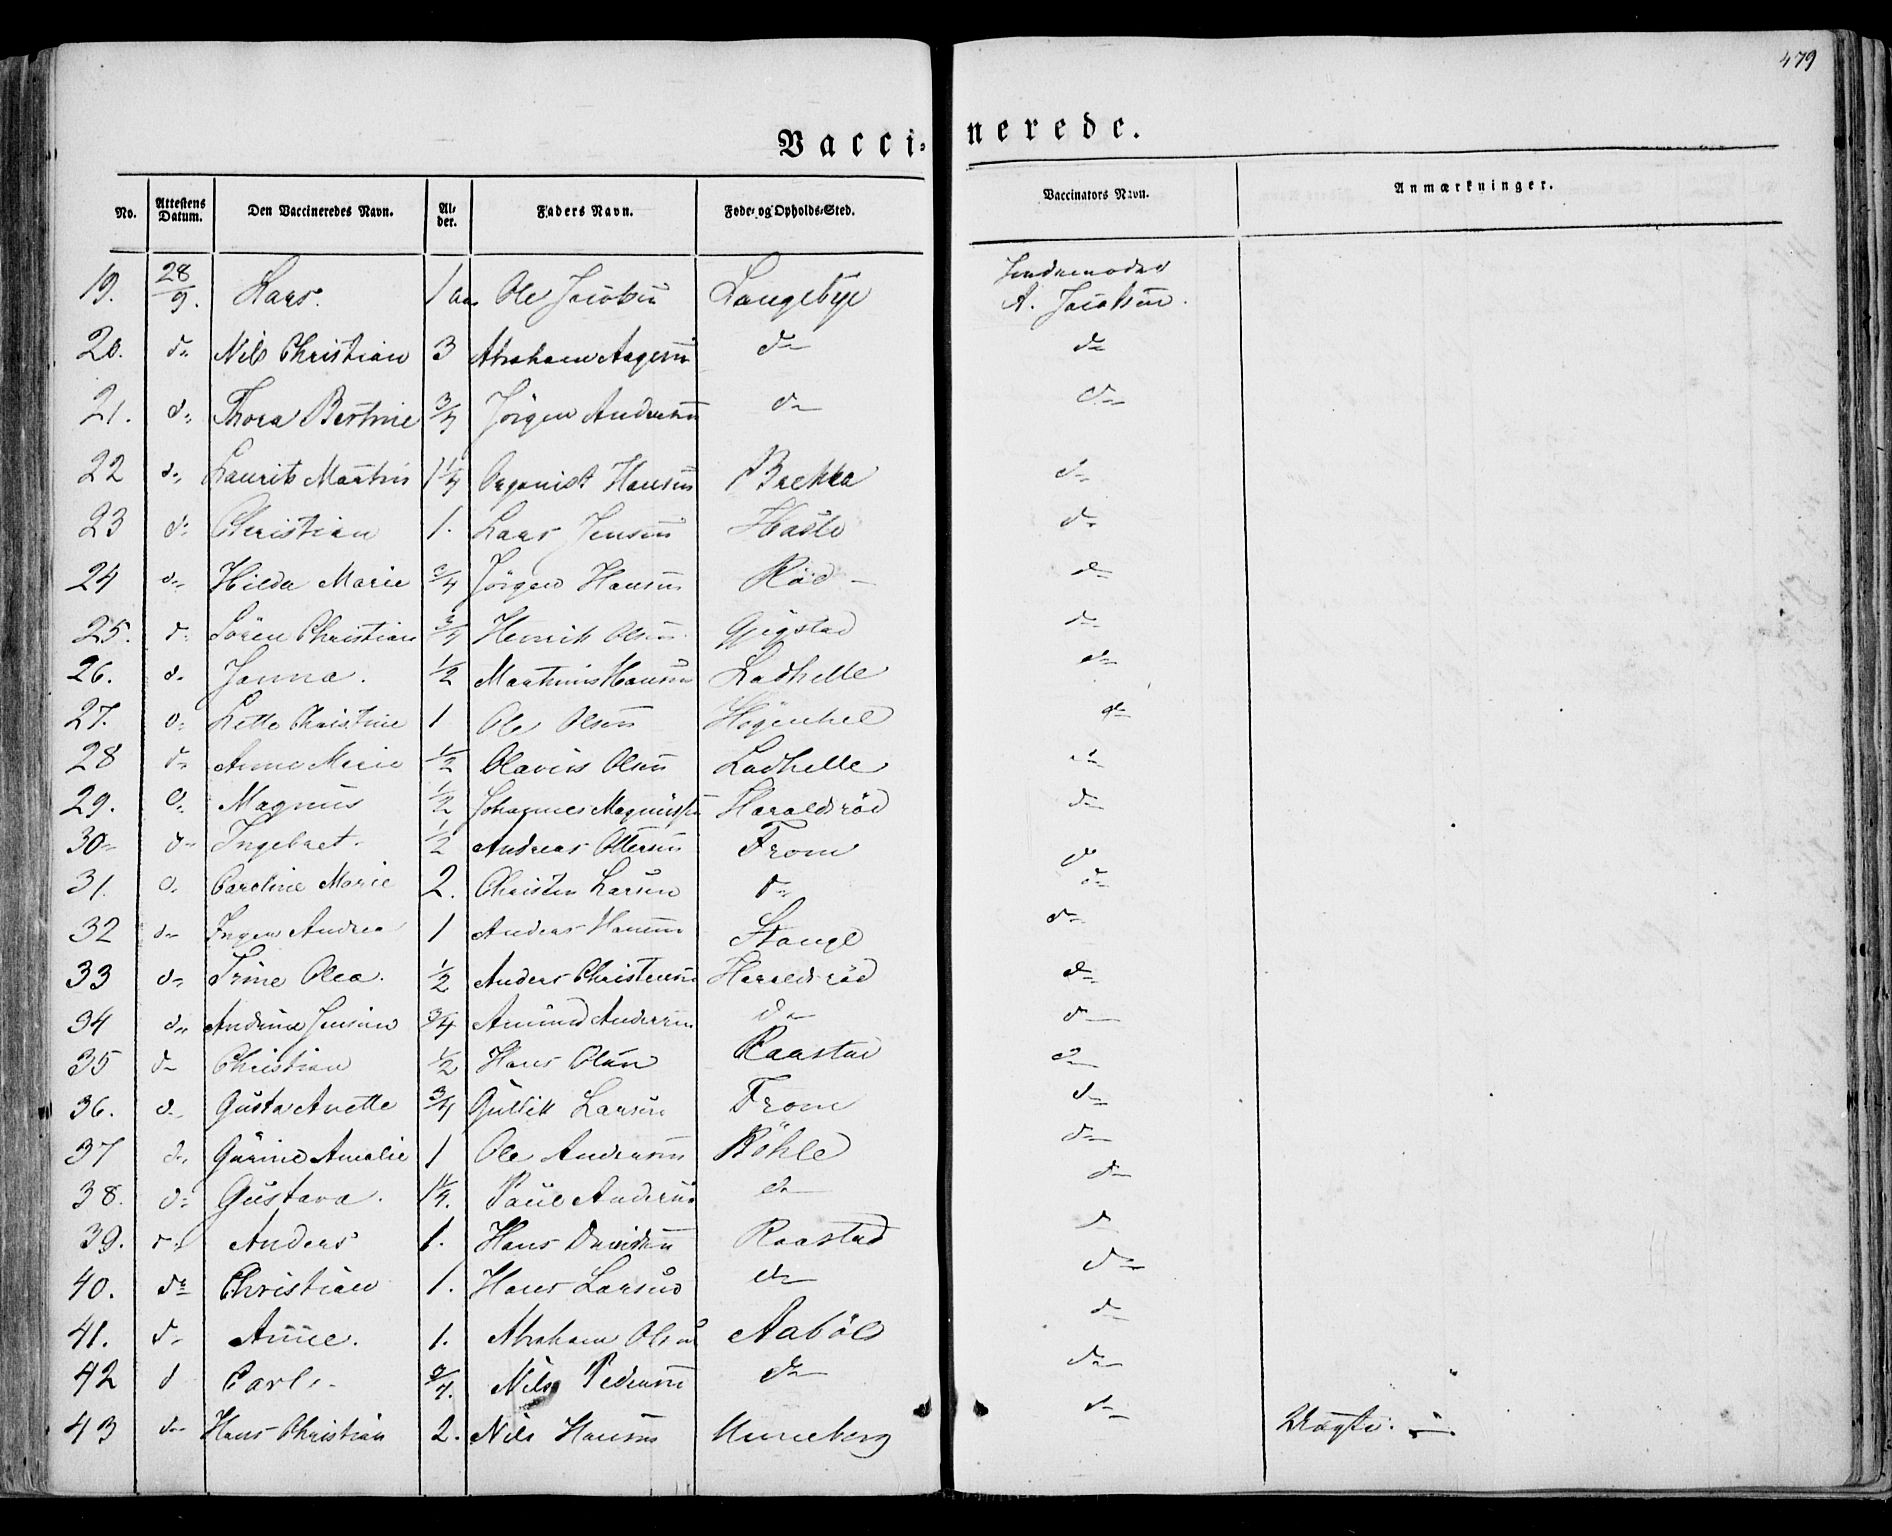 479
Vacci- nerede.
No. Attestens Datum. Den Vaccineredes Navn. Al- der. Faders Navn. Føde- og Opholds-Sted. Vaccinators Navn. Anmærkninger.
19. 28/9. Lars. 1 Ole Jacobsen Langebye Jordemoder A. Jacobsen.
20. do Nils Christian 3 Abraham Aagesen do do
21. do Thora Bertine 3/4 Jörgen Andersen do do
22 do Laurits Martin 1 1/4 Organist Hansen Brekka do
23 do Christian 1. Lars Jensen Hasle do
24 do Hilda Marie 3/4 Jörgen Hansen Röd - do
25. do Sören Christian 3/4 Henrik Olsen Gjegstad do
26. do Janna. 1/2 Marthinius Hansen Ladhelle do
27. do Lette Christine 1 Ole Olsen do
28 do Anne Marie 1/2 Olavus Olsen Ladhelle do
29. do Magnus 1/2 Johannes Magnussen Haraldsröd do
30 do Ingebret. 1/2 Andreas Ottersen From do
31. do Caroline Marie 2. Christen Larsen do do
32 do Inger Andrea 1 Anders Hansen Stange do
33 do Trine Olea. 1/2 Anders Christensen Haraldsröd do
34 do Andrine Jensine 3/4 Amund Andersen do do
35 do Christian 1/2 Hans Olsen Raastad do
36. do Gusta Anette 3/4 Gullik Larsen From do
37 do Gurine Amalie 1 Ole Andersen Röhle do
38. do Gustava. 1 1/4. Paul Andersen do do
39. do Anders 1. Hans Davidsen Raastad do
40. do Christian 1. Hans Larsen do do
41. do Anne. 1. Abraham Olsen Aaböl do
42 d Carl. 3/4. Nils Pedersen do do
43 do Hans Christian 2. Nils Hansen Unneberg do